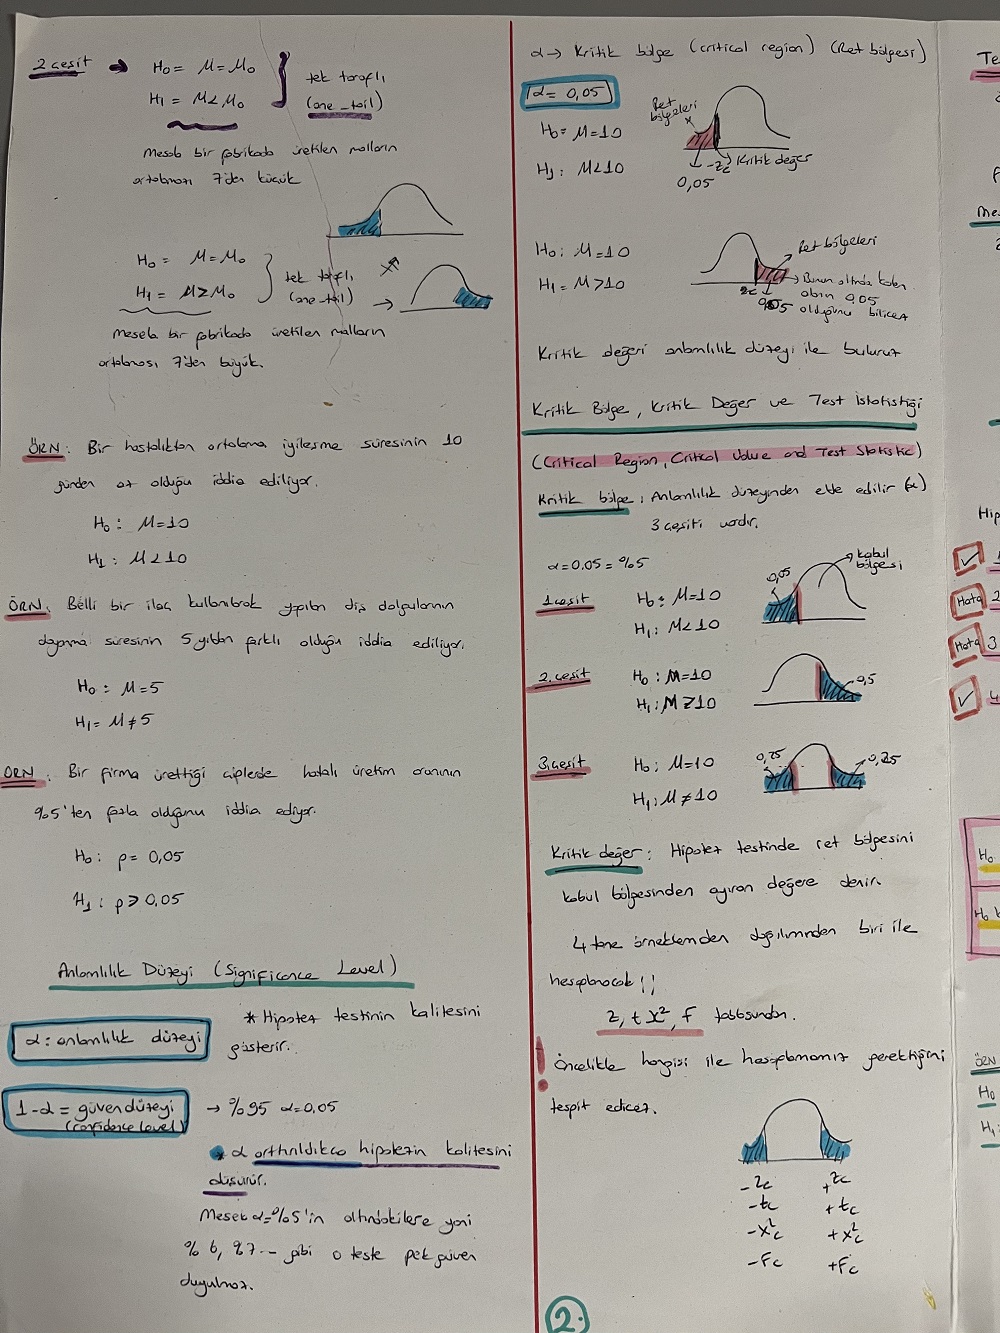 2 çeşit → H₀ = M = M₀
H₁ = M < M₀
tek taraflı
(one-tail)
Mesela bir fabrikada üretilen malların
ortalaması 7'den küçük
H₀ = M = M₀
H₁ = M > M₀
tek taraflı
(one-tail) →
mesela bir fabrikada üretilen malların
ortalaması 7'den büyük.
ÖRN: Bir hastalıktan ortalama iyileşme süresinin 10
günden az olduğu iddia ediliyor.
H₀: M=10
H₁: M<10
ÖRN: Belli bir ilaç kullanılarak yapılan diş dolgularının
dayanma süresinin 5 yıldan farklı olduğu iddia ediliyor.
H₀: M=5
H₁= M≠5
ÖRN: Bir firma ürettiği çiplerde hatalı üretim oranının
%5'ten fazla olduğunu iddia ediyor.
H₀: p= 0,05
H₁: p> 0,05
Anlamlılık Düzeyi (Significance Level)
α: anlamlılık düzeyi
* Hipotez testinin kalitesini
gösterir.
1-α = güven düzeyi
(confidence level)
→ %95 α=0,05
* α arttırıldıkca hipotezin kalitesini
düşürür.
Mesela α=%5'in altındakilere yani
%6, %7-- gibi o teste pek güven
duyulmaz.
α → Kritik bölge (critical region) (Ret bölgesi)
α= 0,05
H₀= M=10
H₁: M<10
Ret
bölgeleri
-Zc Kritik değer
0,05
H₀: M=10
H₁= M>10
Ret bölgeleri
Zc
Bunun altında kalan
alanın 0,05
olduğunu bilicez
Kritik değeri anlamlılık düzeyi ile buluruz
Kritik Bölge, Kritik Değer ve Test İstatistiği
(Critical Region, Critical Value and Test Statistic)
Kritik bölge: Anlamlılık düzeyinden elde edilir (α)
3 çeşiti vardır.
α=0.05 = %5
1.çeşit H₀: M=10
H₁: M<10
0,05
kabul
bölgesi
2.çeşit H₀: M=10
H₁: M>10
0,5
3.çeşit H₀: M=10
H₁: M≠10
0,25
0,25
Kritik değer: Hipotez testinde ret bölgesini
kabul bölgesinden ayıran değere denir.
4 tane örneklemden dağılımından biri ile
hesaplanacak !!
Z, t, X², F tablosundan.
! Öncelikle hangisi ile hesaplamamız gerektiğini
tespit edicez.
-Zc +Zc
-tc +tc
-X²c +X²c
-Fc +Fc
2.
Te
Me
Hip
✓ 1
Hata 2
Hata 3
✓ 4
H₀
H₀ k
ÖRN
H₀
H₁